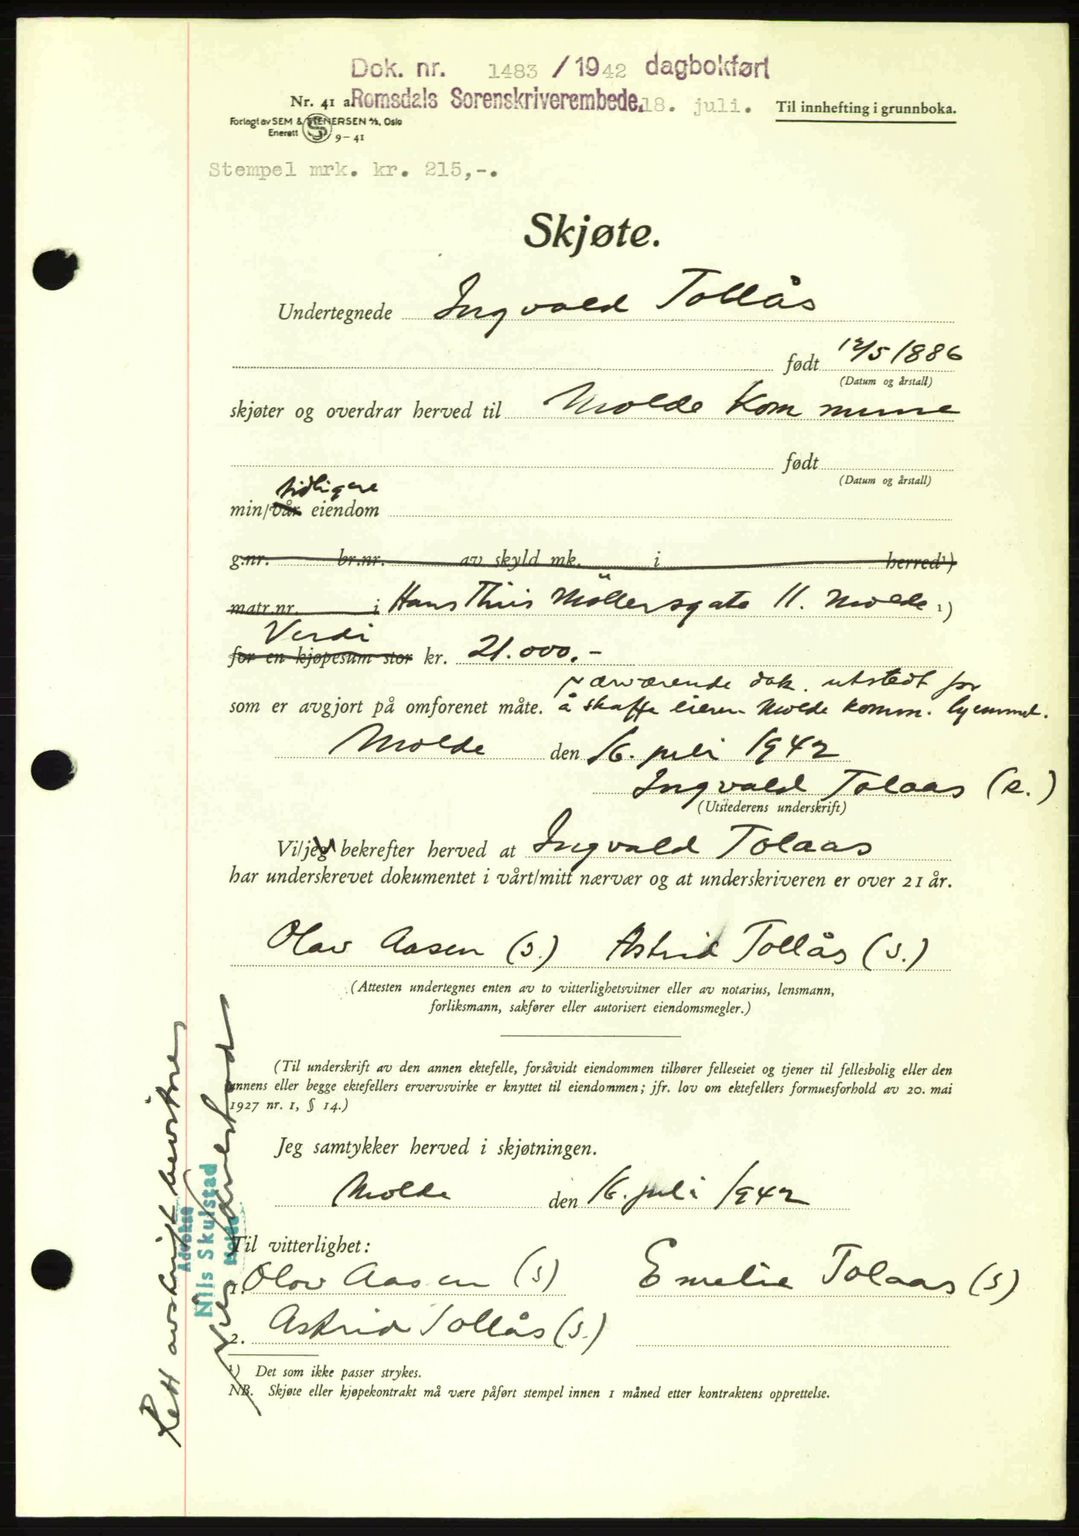 Dok. nr. 1483 / 1942 dagbokført
Nr. 41 a Romsdals Sorenskriverembede. 18. juli. Til innhefting i grunnboka.
Forlagt av SEM & STENERSEN A/S, Oslo
Enerett 9-41
Stempel mrk. kr. 215,-.
Skjøte.
Undertegnede Ingvald Tollås
født 12/5 1886
(Datum og årstall)
skjøter og overdrar herved til Molde Kommune
født
(Datum og årstall)
tidligere
min/vår eiendom
g.nr. br.nr. av skyld mk. i herred¹)
matr.nr. i Hans Thiis Möllersgate 11. Molde ¹)
Verdi
for en kjøpesum stor kr. 21.000,-
Nærværende dok. utstedt for
som er avgjort på omforenet måte. å skaffe eieren Molde komm. hjemmel.
Molde den 16. juli 1942
Ingvald Tolaas (s.)
(Utstederens underskrift)
Vi/jeg bekrefter herved at Ingvald Tolaas
har underskrevet dokumentet i vårt/mitt nærvær og at underskriveren er over 21 år.
Olav Aasen (s.) Astrid Tollås (s.)
(Attesten undertegnes enten av to vitterlighetsvitner eller av notarius, lensmann,
forliksmann, sakfører eller autorisert eiendomsmegler.)
(Til underskrift av den annen ektefelle, forsåvidt eiendommen tilhører felleseiet og tjener til fellesbolig eller den
annens eller begge ektefellers ervervsvirke er knyttet til eiendommen; jfr. lov om ektefellers formuesforhold av 20. mai
1927 nr. 1, § 14.)
Jeg samtykker herved i skjøtningen.
Molde den 16. juli 1942
Til vitterlighet:
1. Olov Aasen (s) Emelie Tolaas (s)
2. Astrid Tollås (s.)
¹) Det som ikke passer strykes.
NB. Skjøte eller kjøpekontrakt må være påført stempel innen 1 måned etter kontraktens opprettelse.
Rett avskrift bevitnes
Advokat
Nils Skulstad
Molde
Nils Skulstad